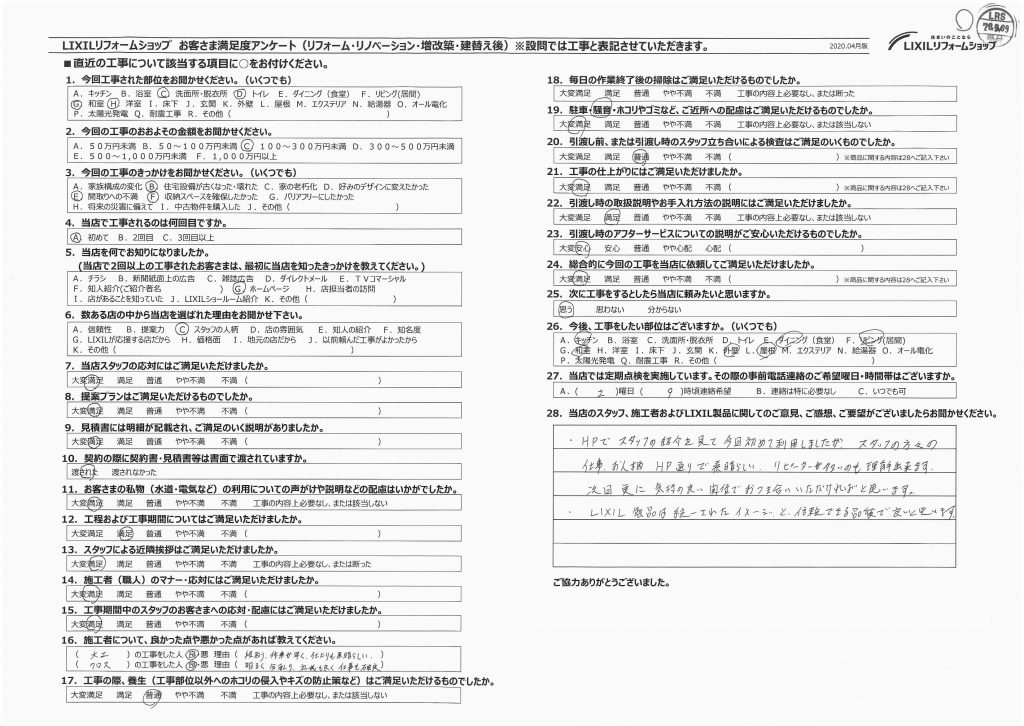 LIXILリフォームショップ お客さま満足度アンケート（リフォーム・リノベーション・増改築・建替え後）※設問では工事と表記させていただきます。
2020.04月版
住まいのことなら
LIXILリフォームショップ
LRS
■直近の工事について該当する項目に○をお付けください。
1．今回工事された部位をお聞かせください。（いくつでも）
A．キッチン B．浴室 C．洗面所・脱衣所 D．トイレ E．ダイニング（食堂） F．リビング(居間)
G．和室 H．洋室 I．床下 J．玄関 K．外壁 L．屋根 M．エクステリア N．給湯器 O．オール電化
P．太陽光発電 Q．耐震工事 R．その他（ ）
2．今回の工事のおおよその金額をお聞かせください。
A．50万円未満 B．50～100万円未満 C．100～300万円未満 D．300～500万円未満
E．500～1,000万円未満 F．1,000万円以上
3．今回の工事のきっかけをお聞かせください。（いくつでも）
A．家族構成の変化 B．住宅設備が古くなった・壊れた C．家の老朽化 D．好みのデザインに変えたかった
E．間取りへの不満 F．収納スペースを確保したかった G．バリアフリーにしたかった
H．将来の災害に備えて I．中古物件を購入した J．その他（ ）
4．当店で工事されるのは何回目ですか。
A．初めて B．2回目 C．3回目以上
5．当店を何でお知りになりましたか。
(当店で2回以上の工事されたお客さまは、最初に当店を知ったきっかけを教えてください。)
A．チラシ B．新聞紙面上の広告 C．雑誌広告 D．ダイレクトメール E．TVコマーシャル
F．知人紹介(ご紹介者名 ) G．ホームページ H．店担当者の訪問
I．店があることを知っていた J．LIXILショールーム紹介 K．その他（ ）
6．数ある店の中から当店を選ばれた理由をお聞かせ下さい。
A．信頼性 B．提案力 C．スタッフの人柄 D．店の雰囲気 E．知人の紹介 F．知名度
G．LIXILが応援する店だから H．価格面 I．地元の店だから J．以前頼んだ工事がよかったから
K．その他（ ）
7．当店スタッフの応対にはご満足いただけましたか。
大変満足 満足 普通 やや不満 不満（ ）
8．提案プランはご満足いただけるものでしたか。
大変満足 満足 普通 やや不満 不満（ ）
9．見積書には明細が記載され、ご満足のいく説明がありましたか。
大変満足 満足 普通 やや不満 不満（ ）
10．契約の際に契約書・見積書等は書面で渡されていますか。
渡された 渡されなかった
11．お客さまの私物（水道・電気など）の利用についての声がけや説明などの配慮はいかがでしたか。
大変満足 満足 普通 やや不満 不満 工事の内容上必要なし、または該当しない
12．工程および工事期間についてはご満足いただけましたか。
大変満足 満足 普通 やや不満 不満（ ）
13．スタッフによる近隣挨拶はご満足いただけましたか。
大変満足 満足 普通 やや不満 不満 工事の内容上必要なし、または断った
14．施工者（職人）のマナー・応対にはご満足いただけましたか。
大変満足 満足 普通 やや不満 不満（ ）
15．工事期間中のスタッフのお客さまへの応対・配慮にはご満足いただけましたか。
大変満足 満足 普通 やや不満 不満（ ）
16．施工者について、良かった点や悪かった点があれば教えてください。
（ 大工 ）の工事をした人 良・悪 理由（ 作業が早く、仕上りも素晴らしい。 ）
（ クロス ）の工事をした人 良・悪 理由（ 明るく 仕事も ）
17．工事の際、養生（工事部位以外へのホコリの侵入やキズの防止策など）はご満足いただけるものでしたか。
大変満足 満足 普通 やや不満 不満 工事の内容上必要なし、または該当しない
18．毎日の作業終了後の掃除はご満足いただけるものでしたか。
大変満足 満足 普通 やや不満 不満 工事の内容上必要なし、または断った
19．駐車・騒音・ホコリやゴミなど、ご近所への配慮はご満足いただけるものでしたか。
大変満足 満足 普通 やや不満 不満 工事の内容上必要なし、または該当しない
20．引渡し前、または引渡し時のスタッフ立ち合いによる検査はご満足のいくものでしたか。
大変満足 満足 普通 やや不満 不満（ ）※商品に関する内容は28へご記入下さい
21．工事の仕上がりにはご満足いただけましたか。
大変満足 満足 普通 やや不満 不満（ ）※商品に関する内容は28へご記入下さい
22．引渡し時の取扱説明やお手入れ方法の説明にはご満足いただけましたか。
大変満足 満足 普通 やや不満 不満 工事の内容上必要なし、または該当しない
23．引渡し時のアフターサービスについての説明がご安心いただけるものでしたか。
大変安心 安心 普通 やや心配 心配（ ）
24．総合的に今回の工事を当店に依頼してご満足いただけましたか。
大変満足 満足 普通 やや不満 不満（ ）※商品に関する内容は28へご記入下さい
25．次に工事をするとしたら当店に頼みたいと思いますか。
思う 思わない 分からない
26．今後、工事をしたい部位はございますか。（いくつでも）
A．キッチン B．浴室 C．洗面所・脱衣所 D．トイレ E．ダイニング（食堂） F．リビング(居間)
G．和室 H．洋室 I．床下 J．玄関 K．外壁 L．屋根 M．エクステリア N．給湯器 O．オール電化
P．太陽光発電 Q．耐震工事 R．その他（ ）
27．当店では定期点検を実施しています。その際の事前電話連絡のご希望曜日・時間帯はございますか。
A．（ 土 ）曜日（ 9 ）時頃連絡希望 B．連絡は特に必要なし C．いつでも可
28．当店のスタッフ、施工者およびLIXIL製品に関してのご意見、ご感想、ご要望がございましたらお聞かせください。
・HPでスタッフの紹介を見て今回初めて利用しましたが スタッフの方々の
仕事、お人柄 HP通りで素晴らしい、リピーターが多いのも理解出来ます。
次回更に気持の良い関係でおつき合いいただければと思います。
・LIXIL製品は統一されたイメージと、信頼できる品質で良いと思います。
ご協力ありがとうございました。